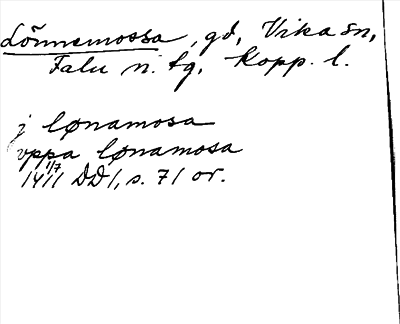 Lönnemossa, gd, Vika sn,
Falu n. tg, Kopp. l.
j lønamosa
vppa lønamosa
1/7
1411 DD 1, s. 71 or.